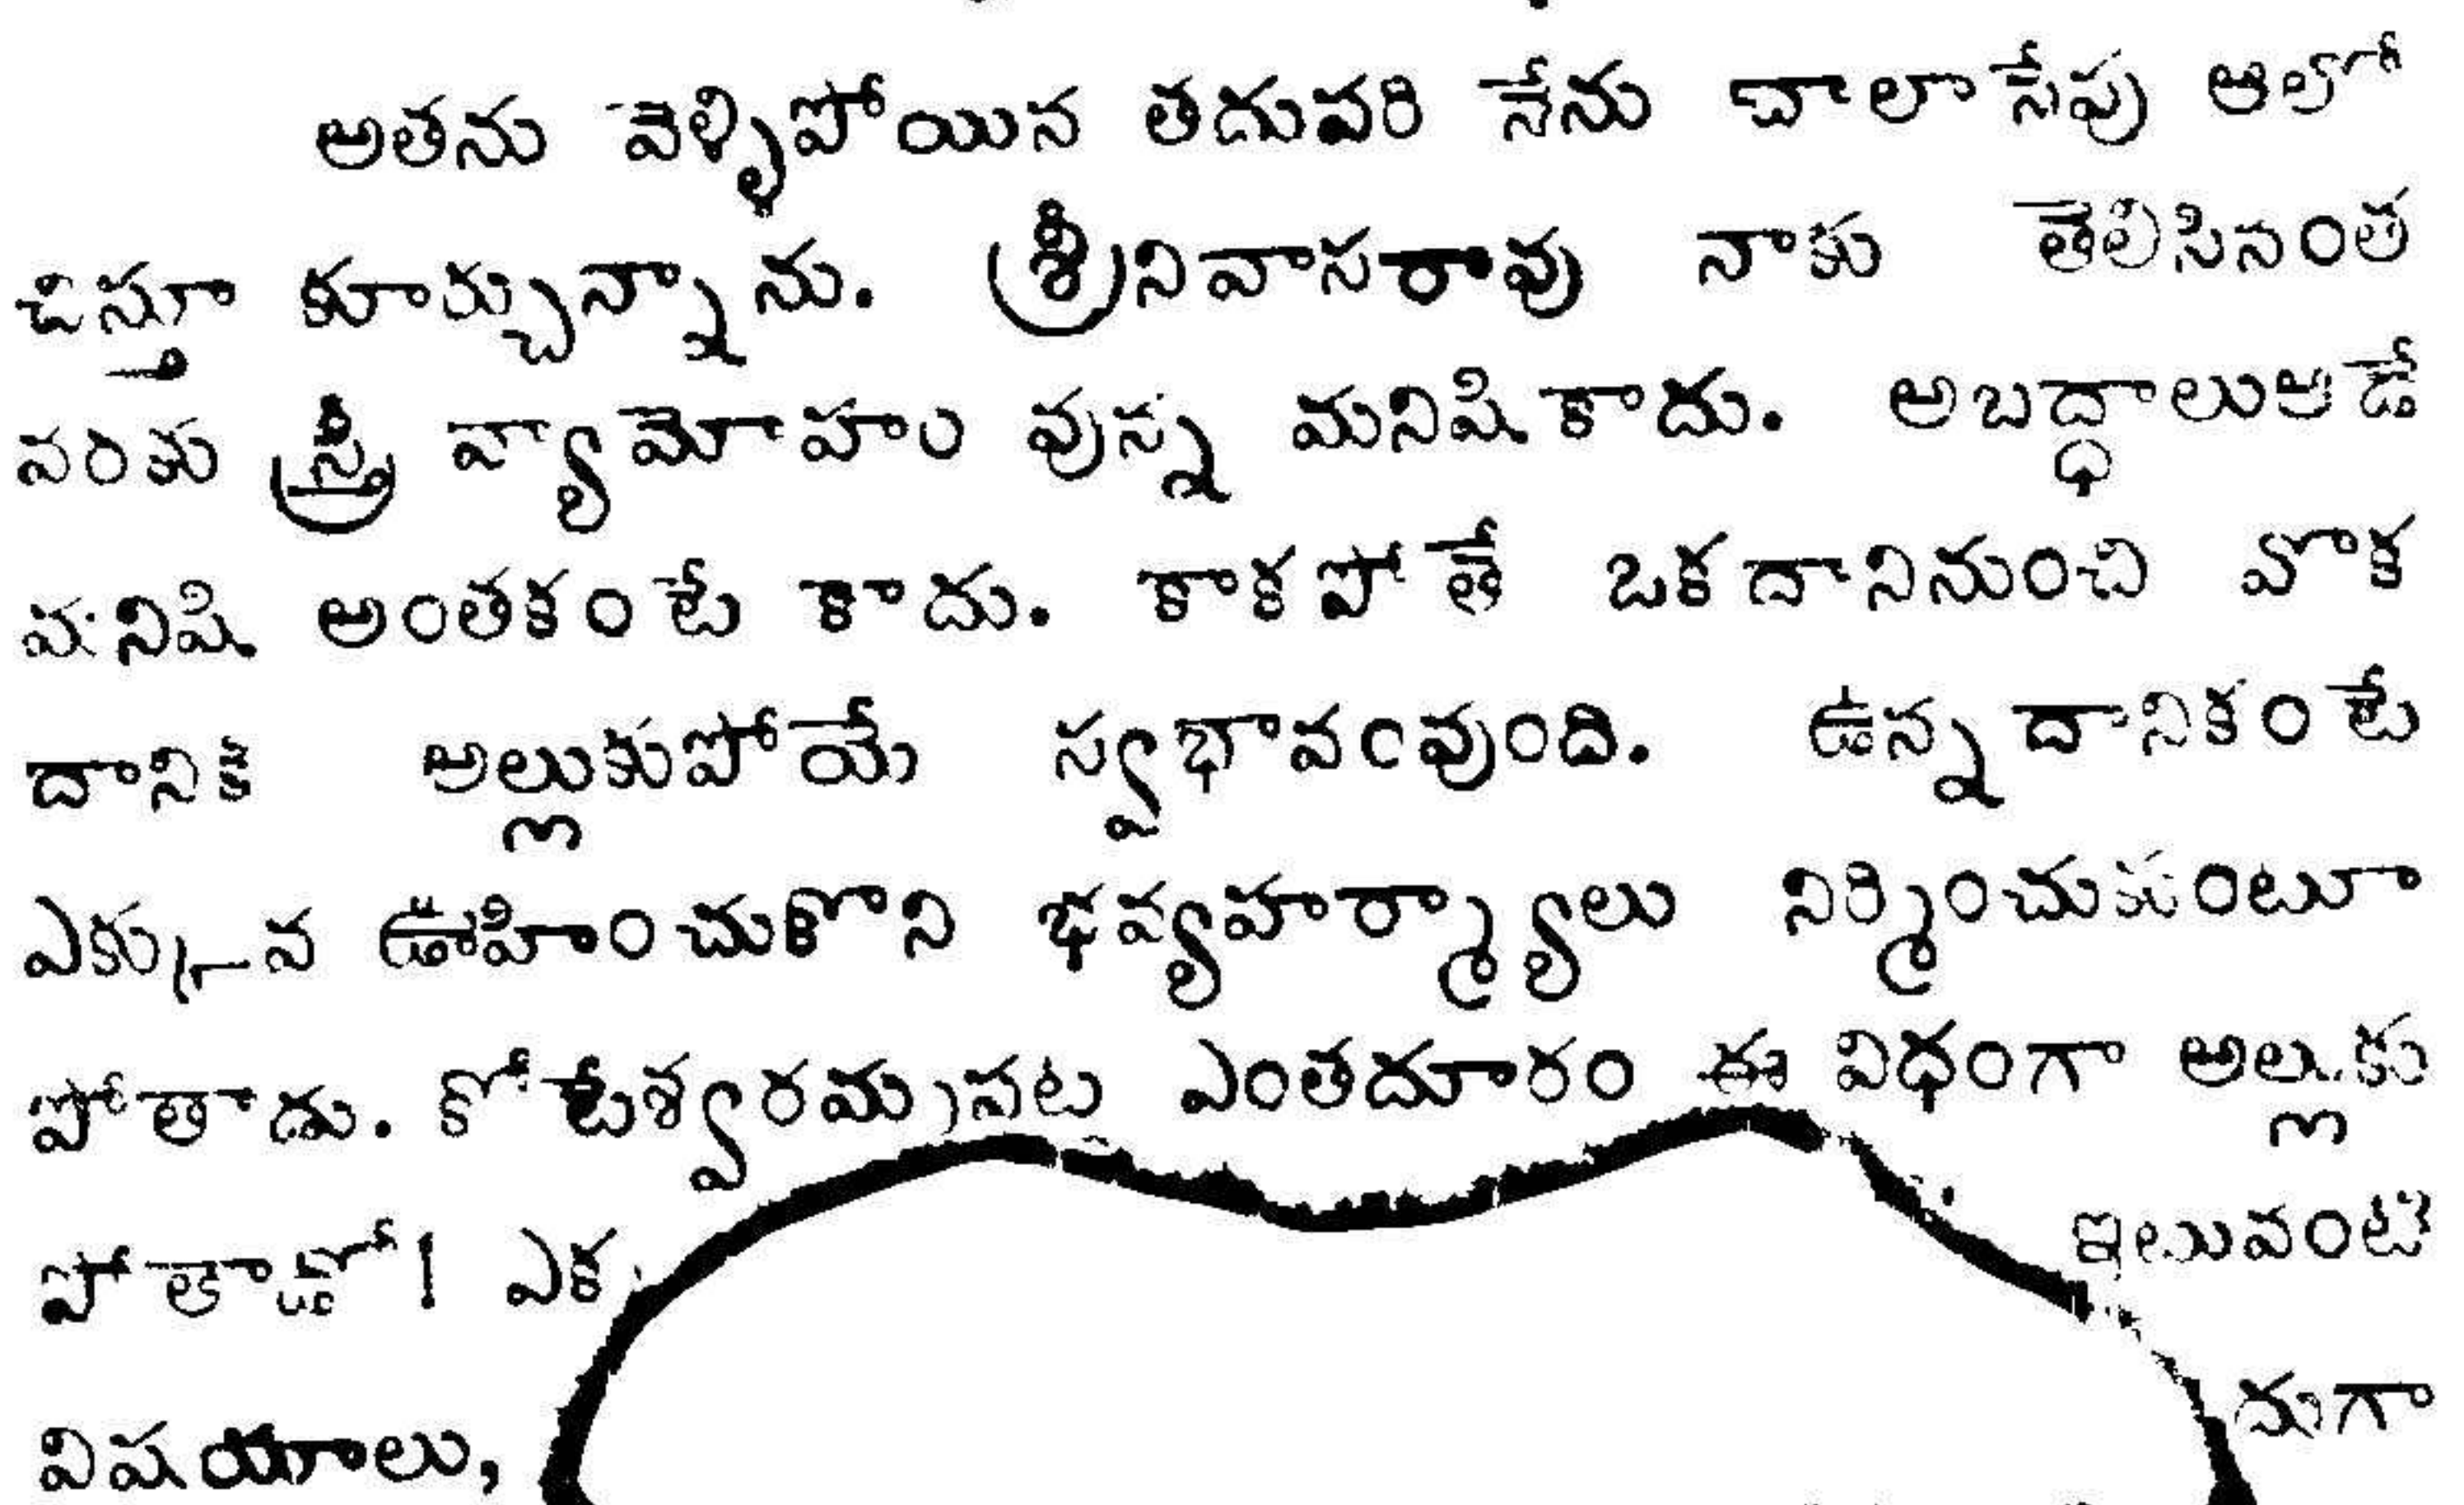 అతను వెళ్ళిపోయిన తదుపరి నేను చాలాసేపు ఆలో
చిస్తూ కూర్చున్నాను. శ్రీనివాసరావు నాకు తెలిసినంత
వరకు స్త్రీ వ్యామోహం వున్న మనిషికాదు. అబద్ధాలుఆడే
మనిషి అంతకంటే కాదు. కాకపోతే ఒకదానినుంచి వొక
దానికి అల్లుకుపోయే స్వభావంవుంది. ఉన్నదానికంటే
ఎక్కువ ఊహించుకొని భవ్యహర్మ్యాలు నిర్మించుకుంటూ
పోతాడు. కోటేశ్వరమ్మపట్ల ఎంతదూరం ఈ విధంగా అల్లుకు
పోతాడో! ఇటువంటి
విషయాలు,